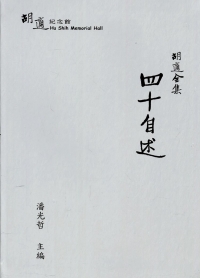 胡適紀念館
Hu Shih Memorial Hall
胡適全集
四十自述
潘光哲 主編